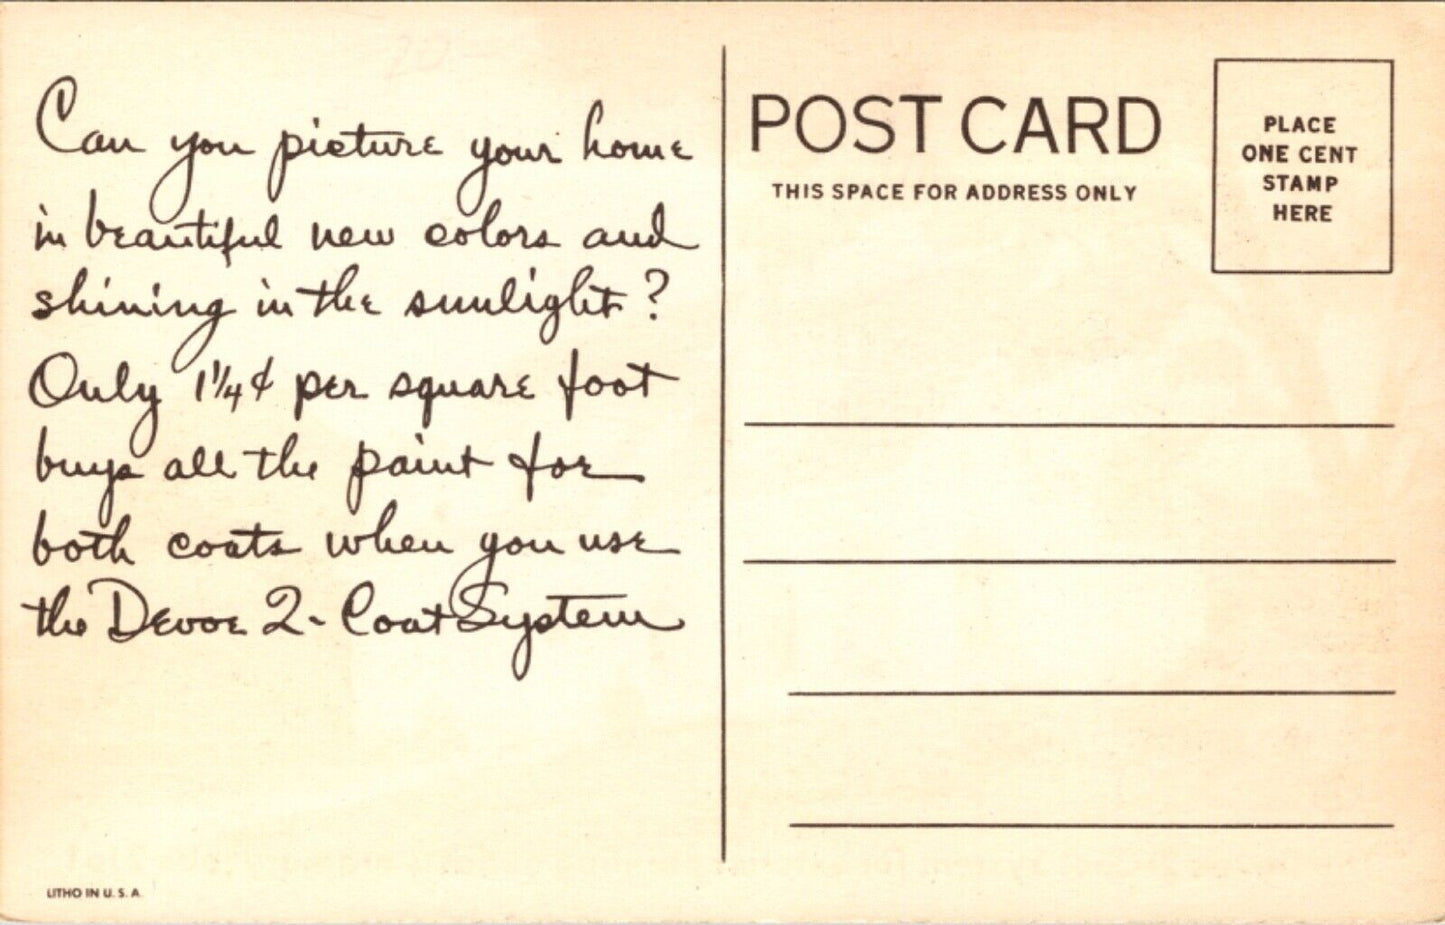 Can you picture your home
in beautiful new colors and
shining in the sunlight?
Only 1¼¢ per square foot
buys all the paint for
both coats when you use
the Devoe 2-Coat System
LITHO IN U. S. A.
POST CARD
THIS SPACE FOR ADDRESS ONLY
PLACE
ONE CENT
STAMP
HERE